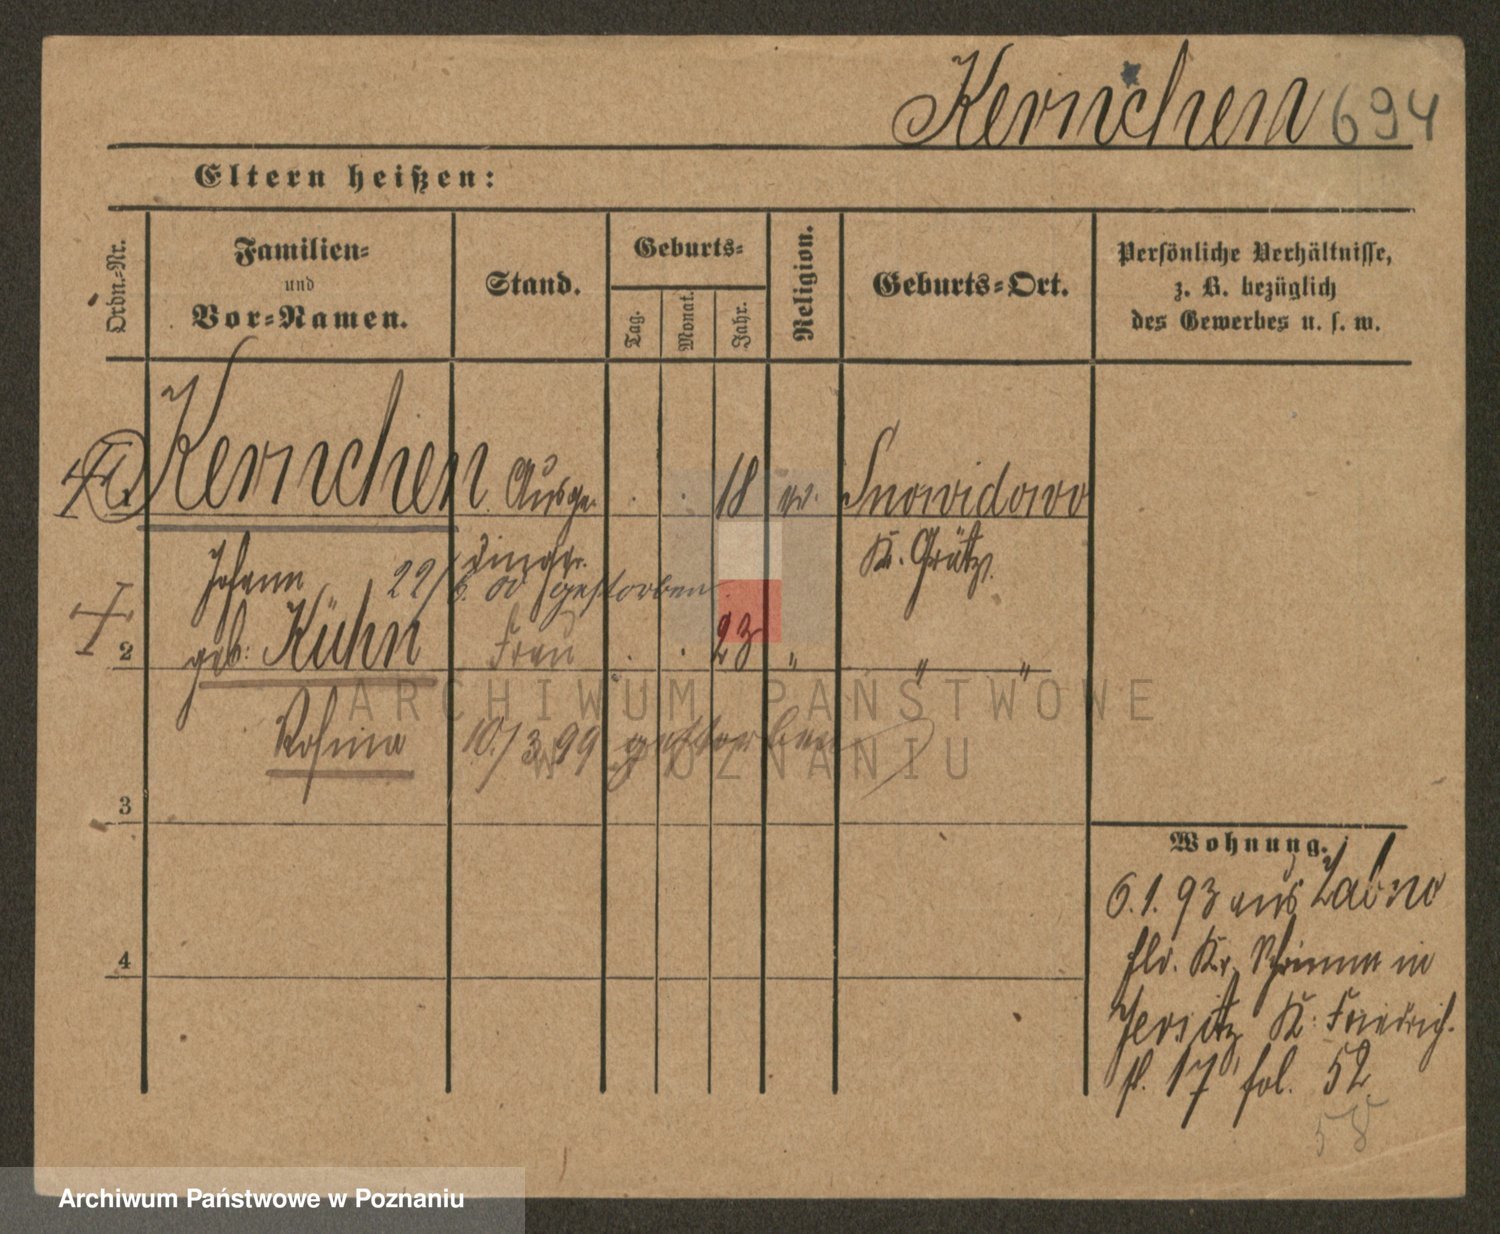 Kernchen 694
Eltern heißen:
Ordn.-Nr.
Familien-
und
Vor-Namen.
Stand.
Geburts-
Tag.
Monat.
Jahr.
Religion.
Geburts-Ort.
Persönliche Verhältnisse,
z. B. bezüglich
des Gewerbes u. s. w.
Kernchen Ausge- . . 18 ev. Snowidowo
Johann dinger. Kr. Grätz.
22/6. 00 gestorben
2 geb: Kühn Frau . . 23 " " "
Rosina 10./3. 99 gestorben
3
4
Wohnung.
6.1.93 aus Zabno
Kr. Schrimm in
Jersitz Kr: Friedrich-
st. 17 fol. 52
58
ARCHIWUM PAŃSTWOWE
W POZNANIU
Archiwum Państwowe w Poznaniu